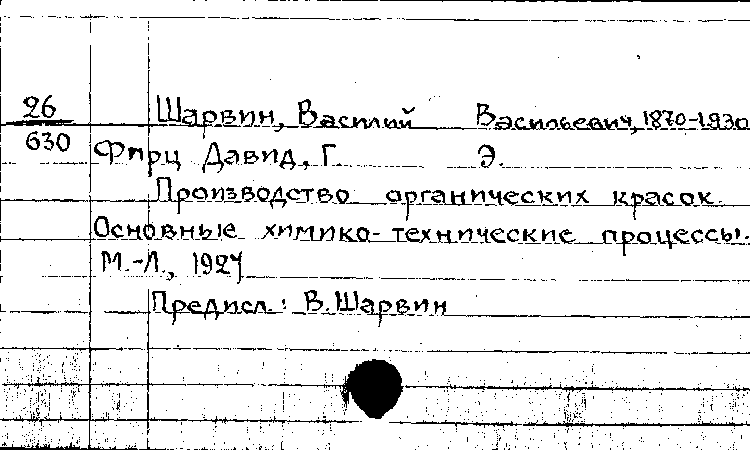 26 Шарвин, Василий Васильевич, 1870-1930
630 Фирц Давид, Г. Э.
Производство органических красок.
Основные химико-технические процессы.
М.-Л., 1927
Предисл.: В. Шарвин